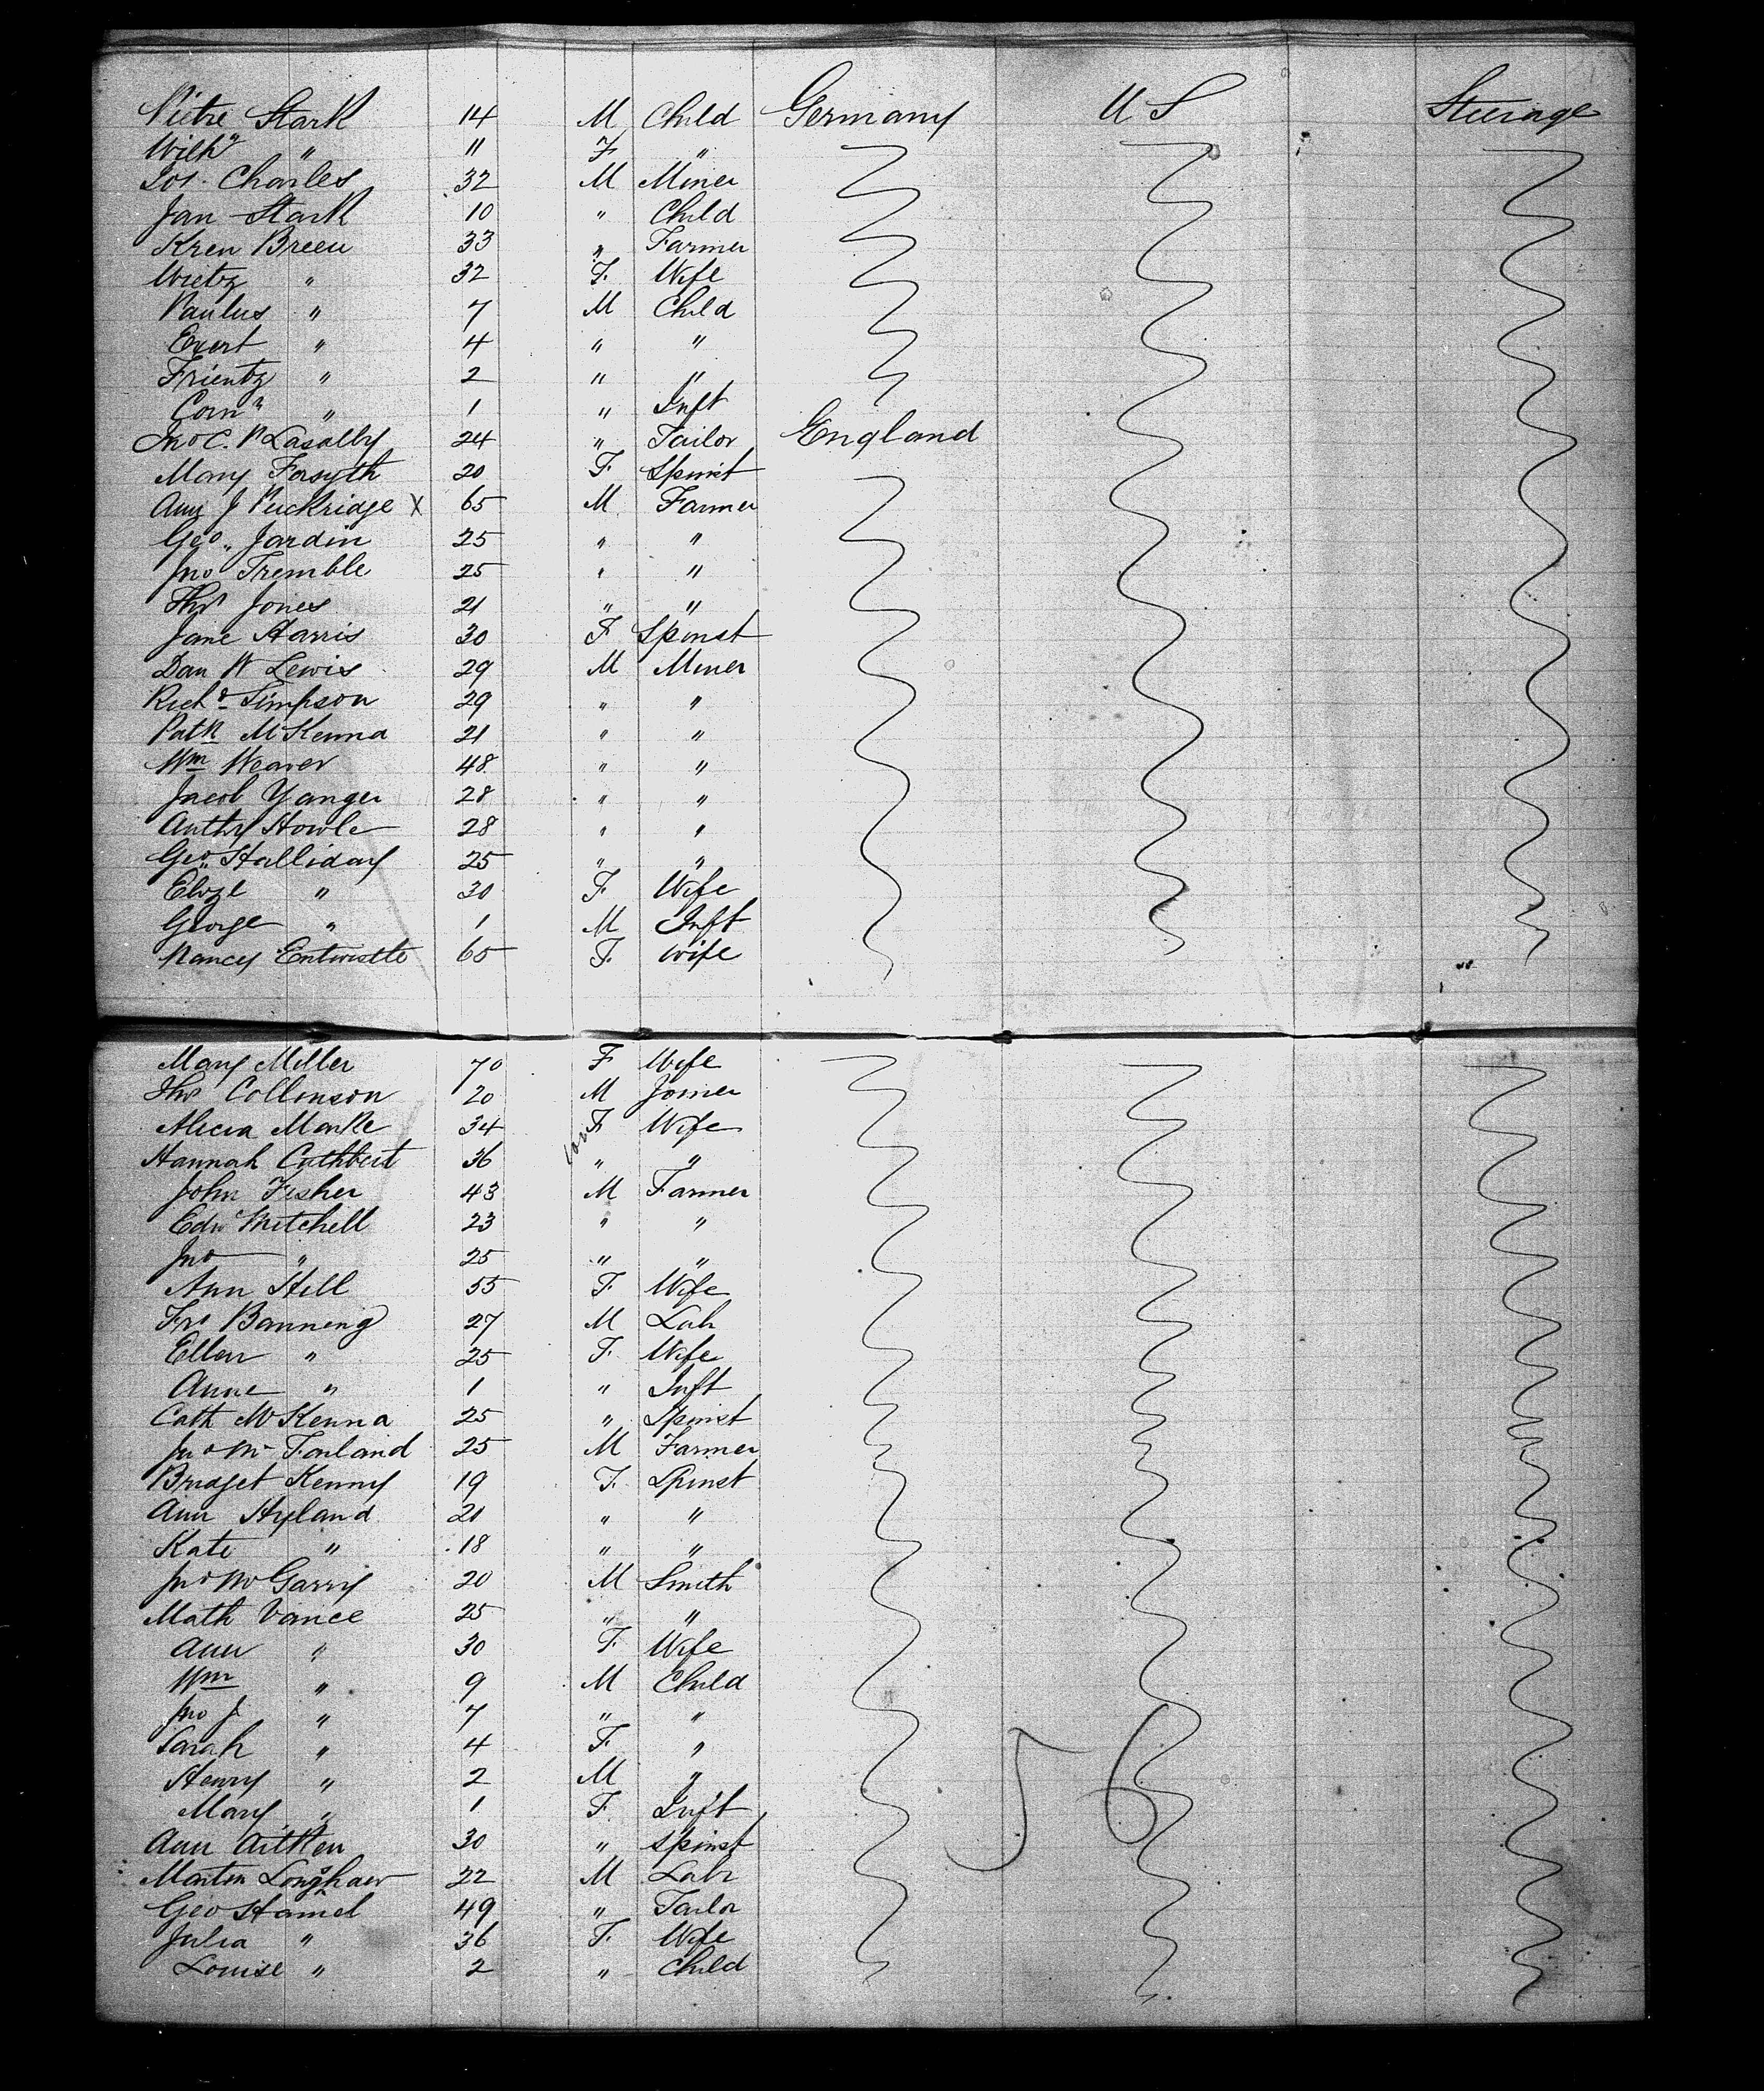 Pietre Stark 14 M Child Germany U S Steerage
Wilh" " 11 F "
Jos. Charles 32 M Miner
Jan Stark 10 " Child
Kren Breeu 33 " Farmer
Wietz " 32 F. Wife
Paulus " 7 M Child
Evert " 4 " "
Frientz " 2 " "
Corn" " 1 " Inft
Jno C. 24 " Tailor England
Mary Forsyth 20 F Spinst
J Puckridge X 65 M. Farmer
Geo. Jardin 25 " "
Jno Tremble 25 " "
Thos Jones 21 " "
Jane Harris 30 F Spinst
Dan W Lewis 29 M Miner
Richd Simpson 29 " "
Patk McKenna 21 " "
Wm Weaver 48 " "
Jacob Yanger 28 " "
Anthy Howle 28 " "
Geo. Halliday 25 " "
Elize " 30 F. Wife
George " 1 M Inft
Nancy Entwistle 65 F. Wife
Mary Miller 70 F Wife
Thos Collinson 20 M Joiner
Alicia Marke 34 F Wife
Hannah Cuthbert 36 " "
John Fisher 43 M Farmer
Edw Mitchell 23 " "
Jno " 25 " "
Ann Hill 55 F. Wife
Frs Banning 27 M Lab
Ellen " 25 F. Wife
Anne " 1 " Inft
Cath McKenna 25 " Spinst
Jno Mc Farland 25 M Farmer
Bridget Kenny 19 F. Spinst
Ann Hyland 21 " "
Kate " 18 " "
Jno McGarry 20 M Smith
Math Vance 25 " "
Ann " 30 F. Wife
Wm " 9 M Child
Jno J. " 7 " "
Sarah " 4 F. "
Henry " 2 M "
Mary " 1 F. Inft
56
Ann Aitken 30 " Spinst
Martin Longshaw 22 M Labr
Geo Hamel 49 " Tailor
Julia " 36 F. Wife
Louise " 2 " Child